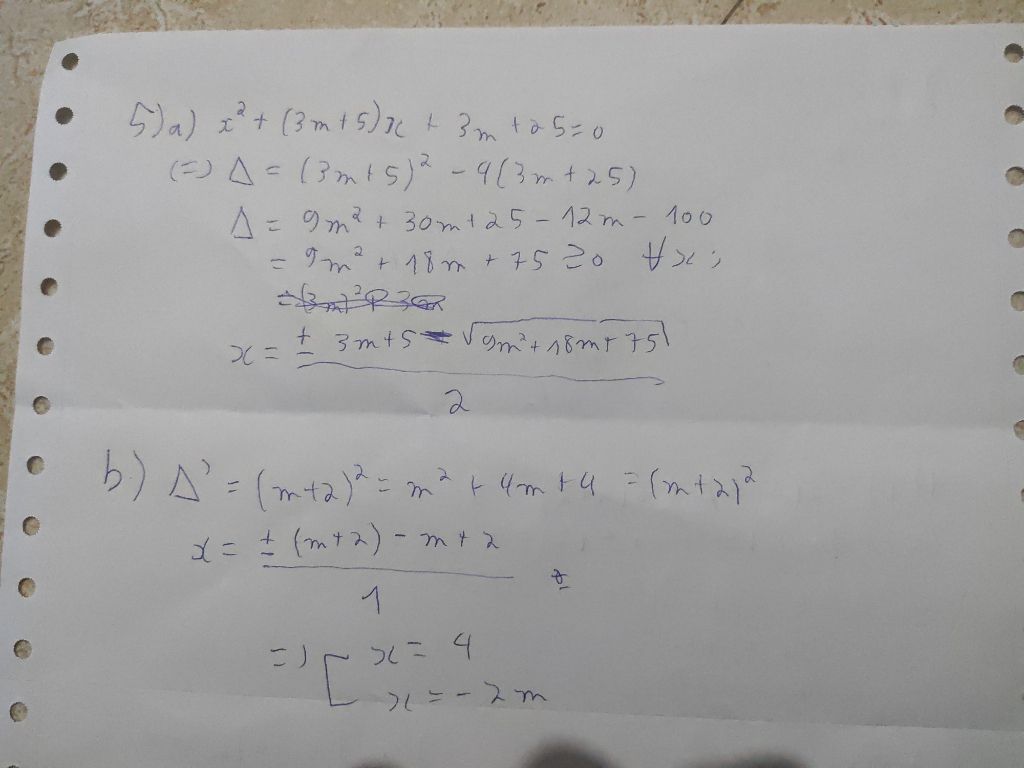 5)a) x² + (3m+5)x + 3m + 25 = 0
(=) Δ = (3m+5)² - 4(3m + 25)
Δ = 9m² + 30m + 25 - 12m - 100
= 9m² + 18m + 75 ≥ 0 ∀x;
x = (± 3m+5 √(9m² + 18m + 75)) / 2
b.) Δ' = (m+2)² = m² + 4m + 4 = (m+2)²
x = (± (m+2) - m + 2) / 1 ±
=) [ x = 4
x = -2m